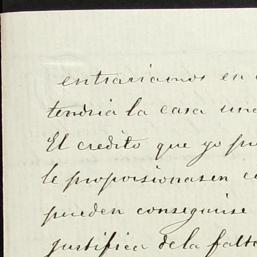 entrariamos en
tendria la casa una
El credito que yo
le proporsionasen
pueden conseguirse
justifica de la falta